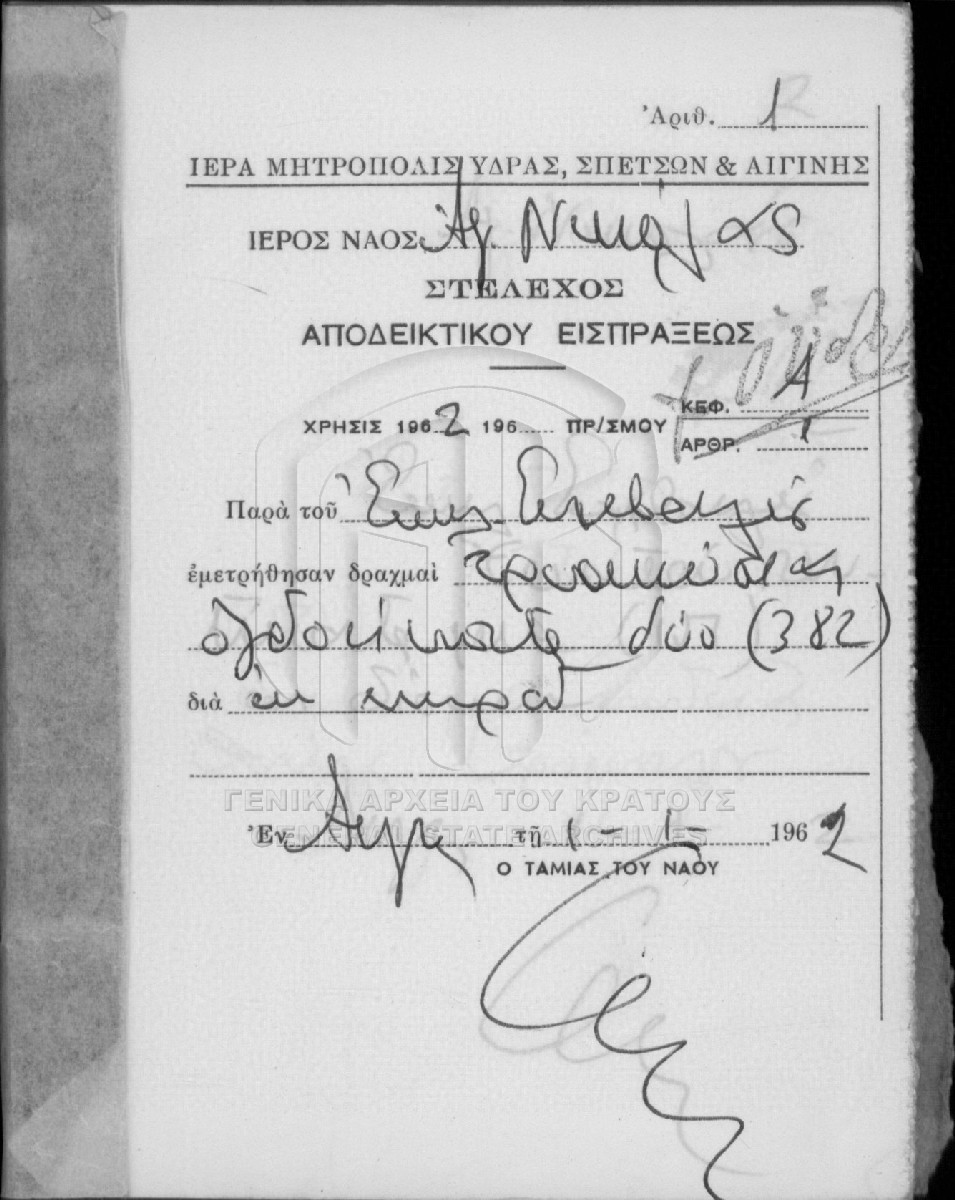 Ἀριθ. 1
ΙΕΡΑ ΜΗΤΡΟΠΟΛΙΣ ΥΔΡΑΣ, ΣΠΕΤΣΩΝ & ΑΙΓΙΝΗΣ
ΙΕΡΟΣ ΝΑΟΣ Ἁγ. Νικόλας
ΣΤΕΛΕΧΟΣ
ΑΠΟΔΕΙΚΤΙΚΟΥ ΕΙΣΠΡΑΞΕΩΣ
ΚΕΦ. Α
ΧΡΗΣΙΣ 1962 196 ΠΡ/ΣΜΟΥ
ΑΡΘΡ. 1
Παρὰ τοῦ Ἐκκλ.
ἐμετρήθησαν δραχμαὶ τριακόσιαι
ὀγδοήκοντα δύο (382)
διὰ ἐκ κηροῦ
ΓΕΝΙΚΑ ΑΡΧΕΙΑ ΤΟΥ ΚΡΑΤΟΥΣ
GENERAL STATE ARCHIVES
Ἐν Αιγ τῇ 1-1- 1962
Ο ΤΑΜΙΑΣ ΤΟΥ ΝΑΟΥ